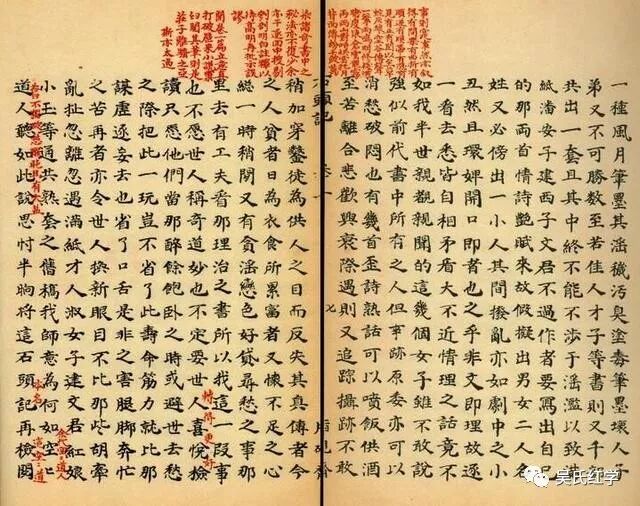 事則實事然亦叙
得有間架有曲折有
順逆有映帶有隱有
見有正有閏以至草
蛇灰線空谷傳聲
一擊両鳴明修棧道
暗度陳倉雲龍霧雨
両山對峙烘雲托月
背面傅粉千皴萬
染諸奇書中之
秘法亦不復少余
亦于逐回中搜剔
刳剖明白註釋以
待高明再批示誤
謬
開卷一篇立意真
打破歷來小說窠
臼閱其筆則是
莊子離騷之亞
斯亦太過
一種風月筆墨其滛穢汚臭塗毒筆墨壞人子
弟又不可勝数至若佳人才子等書則又千
共出一套且其中終不能不涉于滛濫以致滿
紙潘安子建西子文君不過作者要寫出自己
的那両首情詩艷賦來故假擬出男女二人名
姓又必傍出一小人其間撥亂亦如劇中之小
丑然且環婢開口即者也之乎非文即理故逐
一看去悉皆自相矛盾大不近情理之話竟不
如我半世親覩親聞的這幾個女子雖不敢說
強似前代書中所有之人但事跡原委亦可以
消愁破悶也有幾首歪詩熟話可以噴飯供酒
至若離合悲歡興衰際遇則又追踪攝跡不敢
石頭記 卷一 七 脂硯齋
稍加穿鑿徒為供人之目而反失其真傳者今
之人貧者日為衣食所累富者又懷不足之心
總一時稍閑又有貪滛戀色好貨尋愁之事那
里去有工夫看那理治之書所以我這一段事
也不愿世人稱奇道妙也不定要世人喜恱檢
轉得更好
讀只愿他們當那醉餘飽卧之時或避世去愁
之際把此一玩豈不省了些壽命筋力就比那
謀虛逐妄去也省了口舌是非之害腿脚奔忙
之苦再者亦令世人換新眼目不比那些胡牽
亂扯忽離忽遇滿紙才人淑女子建文君紅娘
余不獨破愁醒盹且有大益
小玉等通共熟套之舊稿我師意為何如空空
道人聽如此說思忖半晌將這石頭記再檢閱
本名
吴氏红学